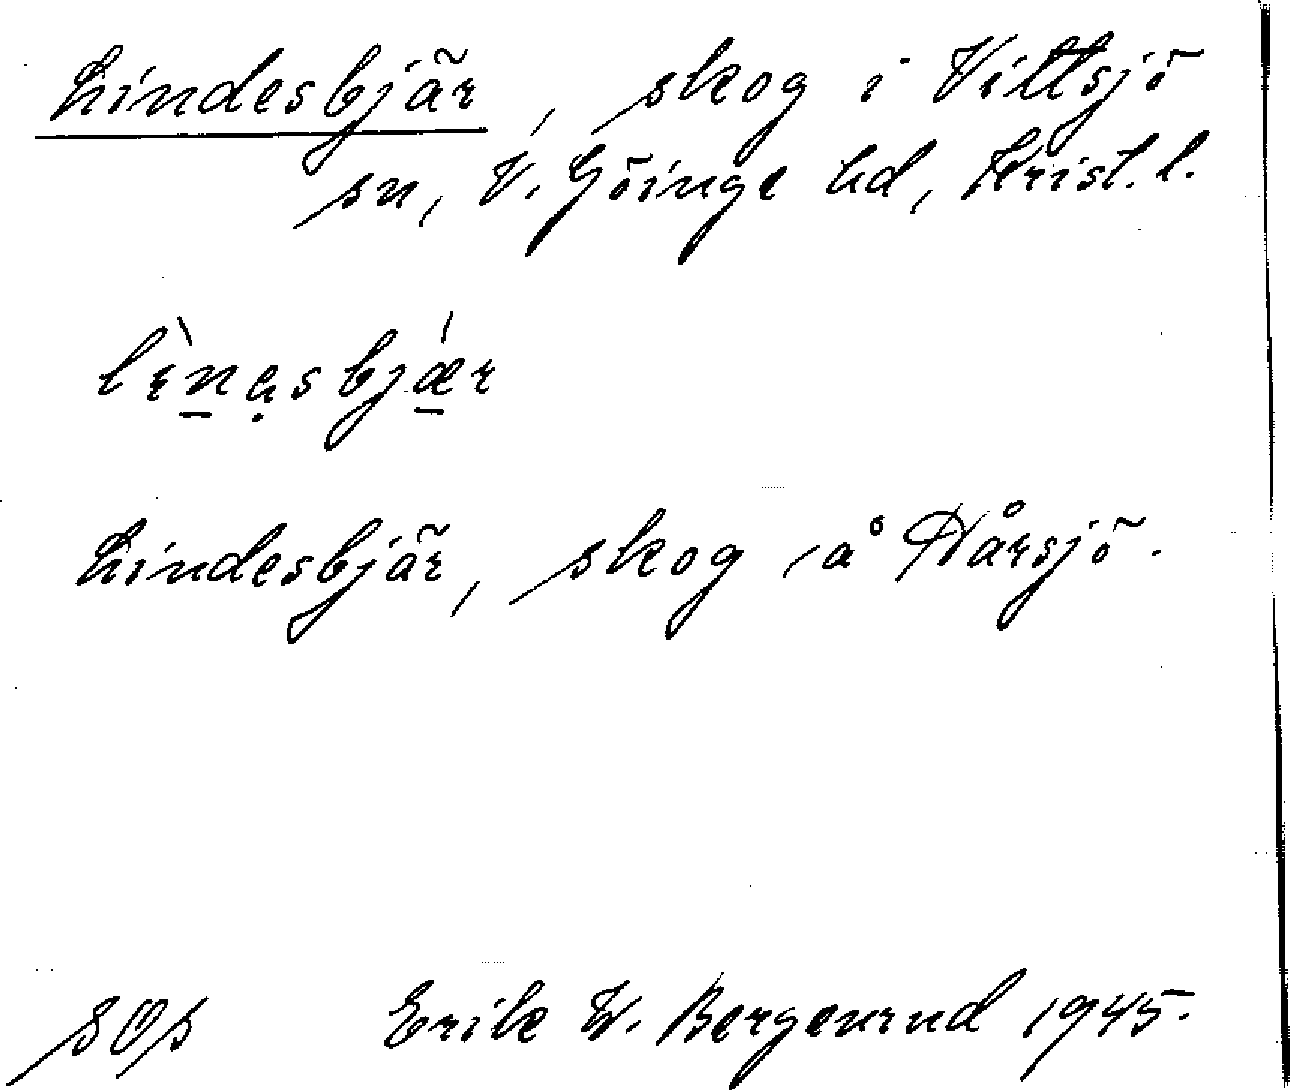 Lindesbjär, skog i Vittsjö
sn, V. Göinge hd, Krist. l.
lìnesbjǽr
Lindesbjär, skog å Hårsjö.
Erik W. Bergenrud 1945.